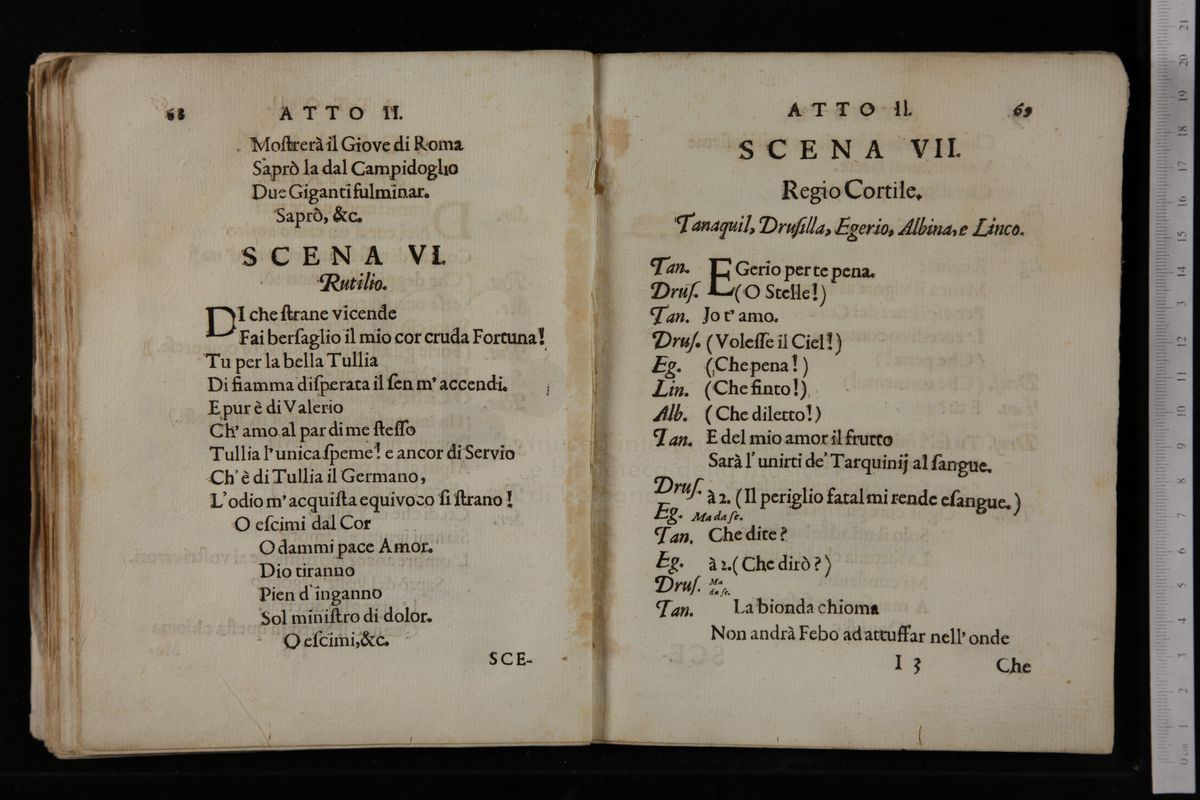 68
ATTO II.
Moſtrerà il Giove di Roma
Saprò la dal Campidoglio
Due Giganti fulminar.
Saprò, &c.
SCENA VI.
Rutilio.
DI che ſtrane vicende
Fai berſaglio il mio cor cruda Fortuna!
Tu per la bella Tullia
Di fiamma diſperata il ſen m' accendi.
E pur è di Valerio
Ch' amo al par di me ſteſſo
Tullia l' unica ſpeme! e ancor di Servio
Ch' è di Tullia il Germano,
L' odio m' acquiſta equivoco ſi ſtrano!
O eſcimi dal Cor
O dammi pace Amor.
Dio tiranno
Pien d' inganno
Sol miniſtro di dolor.
O eſcimi, &c.
SCE-
ATTO II.
69
SCENA VII.
Regio Cortile.
Tanaquil, Druſilla, Egerio, Albina, e Linco.
Tan. EGerio per te pena.
Druſ. (O Stelle!)
Tan. Jo t' amo.
Druſ. (Voleſſe il Ciel!)
Eg. (Che pena!)
Lin. (Che finto!)
Alb. (Che diletto!)
Tan. E del mio amor il frutto
Sarà l' unirti de' Tarquinij al ſangue.
Druſ. à 2. (Il periglio fatal mi rende eſangue.)
Eg. Ma da ſe.
Tan. Che dite?
Eg. à 2. (Che dirò?)
Druſ. Ma da ſe.
Tan. La bionda chioma
Non andrà Febo ad attuffar nell' onde
I 3
Che